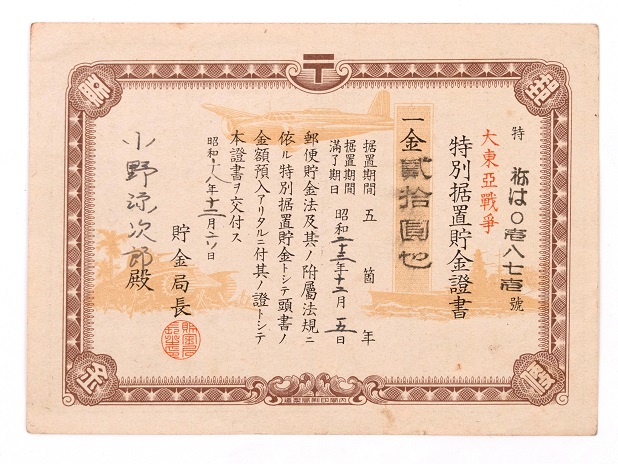 特 祢は〇壱八七壱號
大東亞戰爭
特別据置貯金證書
一金貳拾圓也
据置期間 五箇年
据置期間滿了期日 昭和二十三年十二月五日
郵便貯金法及其ノ附屬法規ニ
依ル特別据置貯金トシテ頭書ノ
金額預入アリタルニ付其ノ證トシテ
本證書ヲ交付ス
昭和十八年十二月 日
貯金局長
小野源次郎殿
內閣印刷局製造